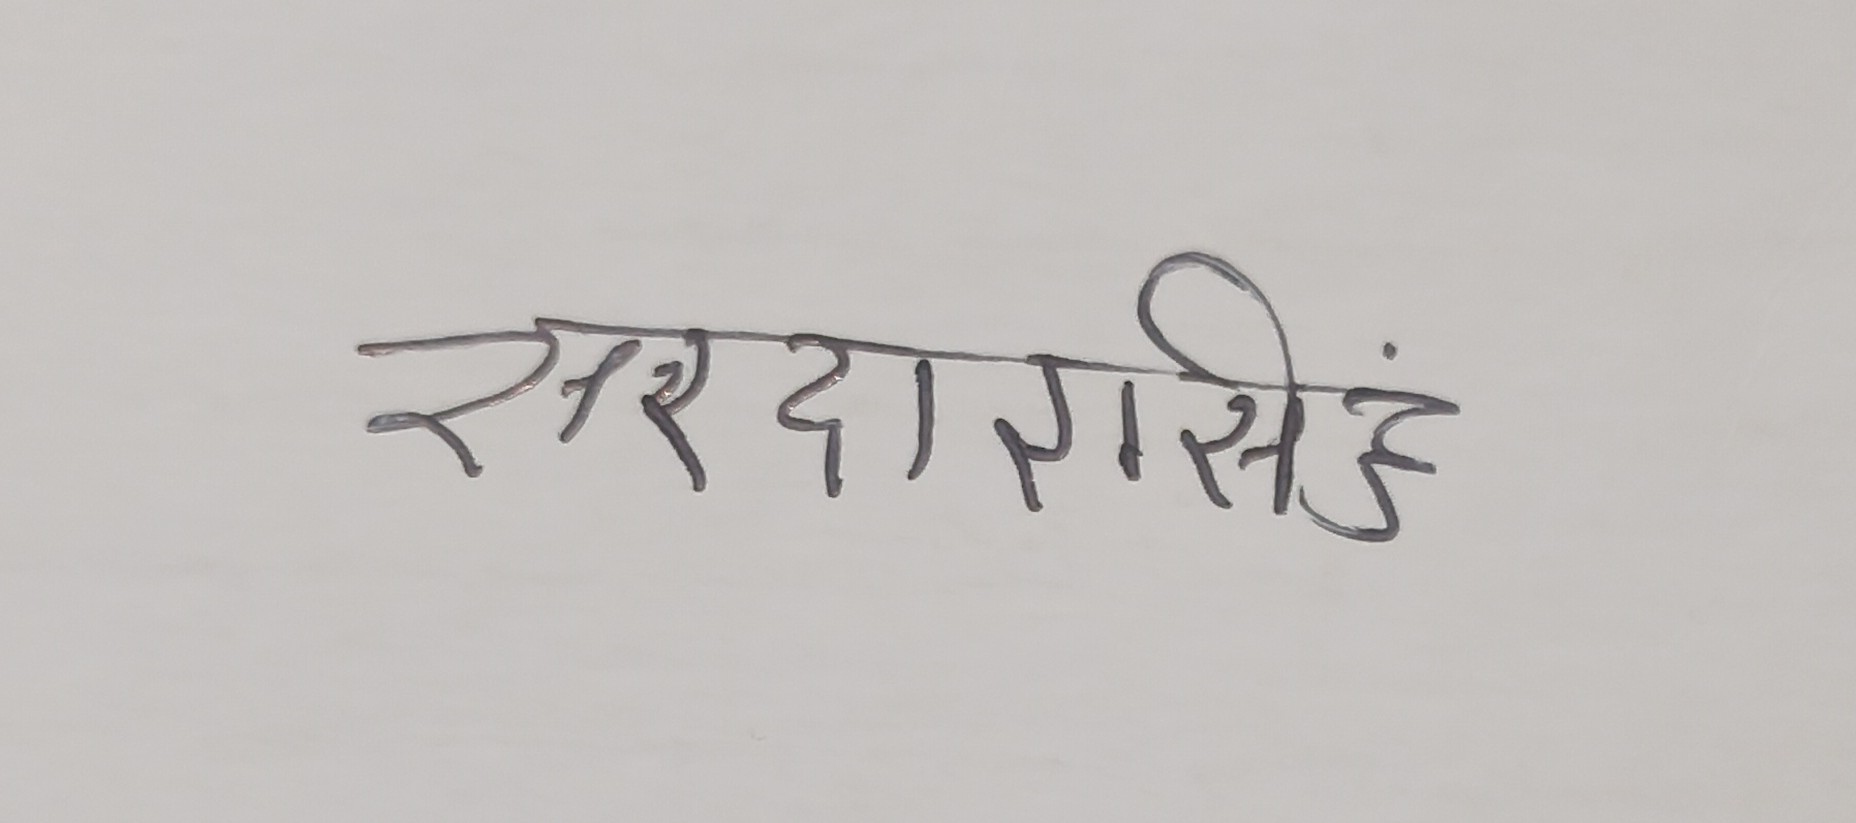 सरदारासीहं